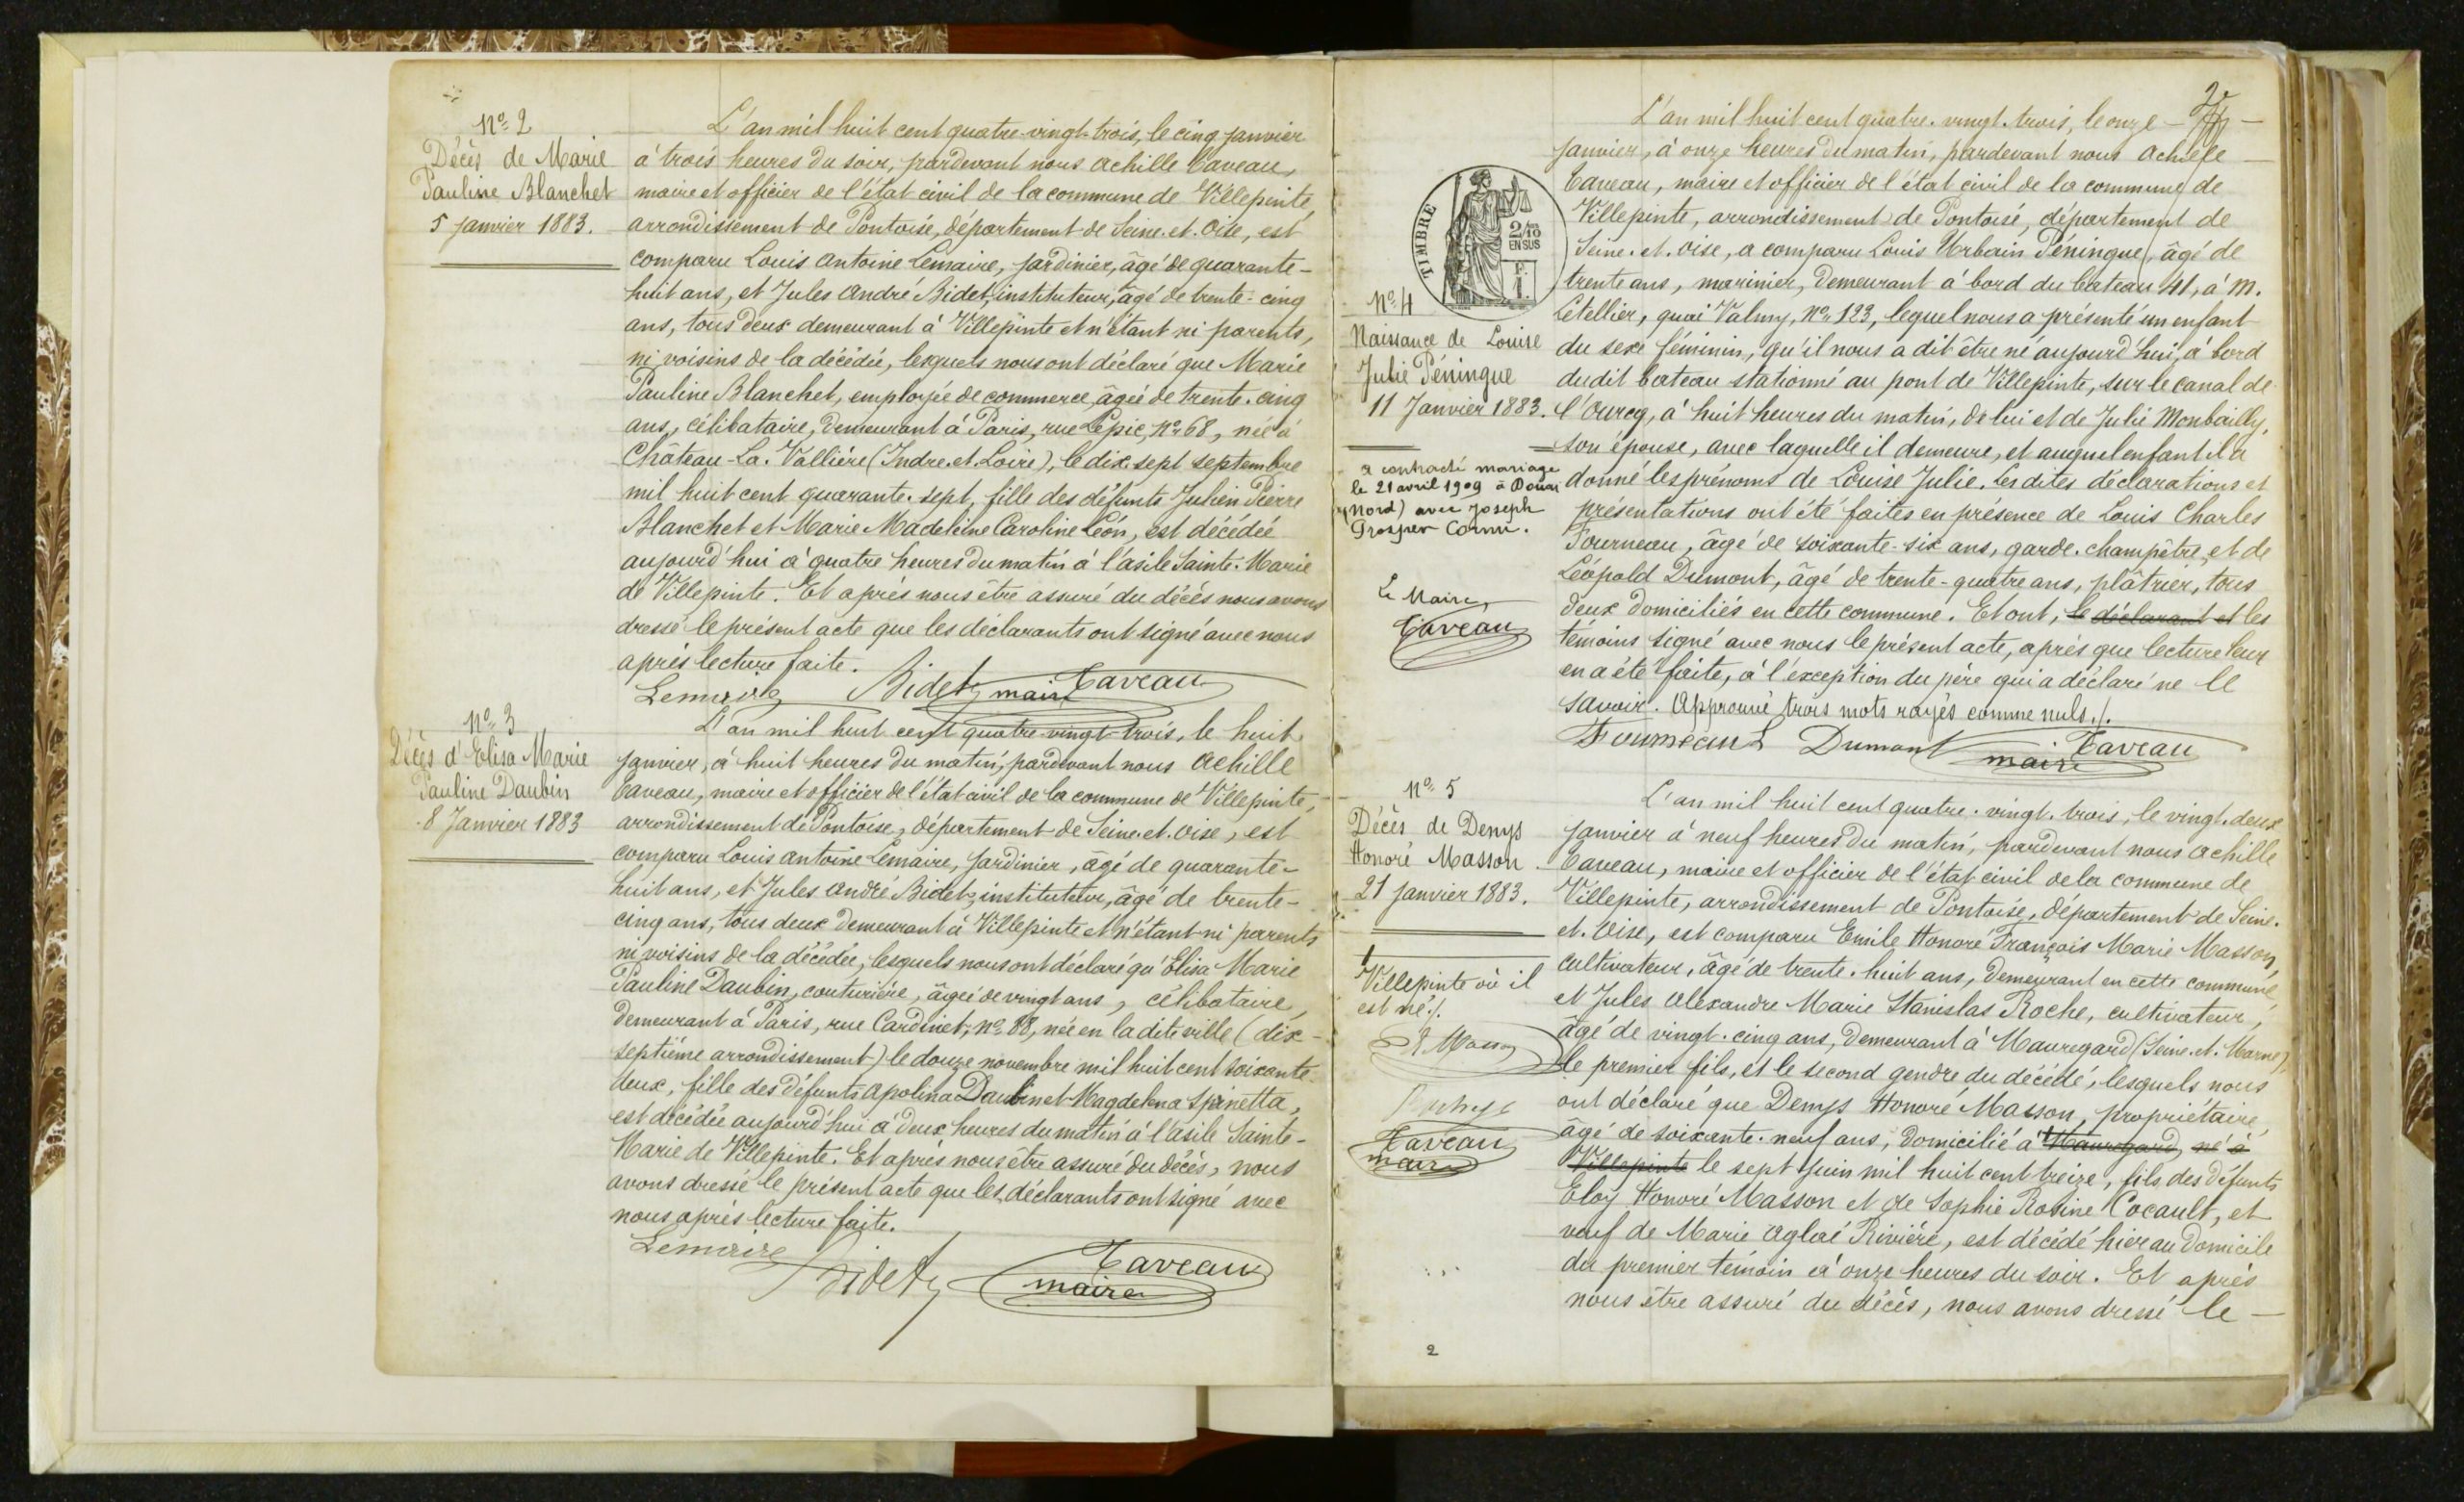 N° 2
Décès de Marie
Pauline Blanchet
5 Janvier 1883.
L'an mil huit cent quatre-vingt-trois, le cinq janvier
à trois heures du soir, pardevant nous Achille Caveau,
maire et officier de l'état civil de la commune de Villepinte,
arrondissement de Pontoise, département de Seine-et-Oise, est
comparu Louis Antoine Lemaire, jardinier, âgé de quarante-
huit ans, et Jules André Bidet, instituteur, âgé de trente-cinq
ans, tous deux demeurant à Villepinte et n'étant ni parents,
ni voisins de la décédée, lesquels nous ont déclaré que Marie
Pauline Blanchet, employée de commerce, âgée de trente-cinq
ans, célibataire, demeurant à Paris, rue Lepic, N° 68, née à
Château-La-Vallière (Indre-et-Loire), le dix-sept septembre
mil huit cent quarante-sept, fille des défunts Julien Pierre
Blanchet et Marie Madeleine Caroline Léon, est décédée
aujourd'hui à quatre heures du matin à l'asile Sainte-Marie
de Villepinte. Et après nous être assuré du décès nous avons
dressé le présent acte que les déclarants ont signé avec nous
après lecture faite.
Lemaire Bidet maire Caveau
N° 3
Décès d'Elisa Marie
Pauline Daubin
8 Janvier 1883
L'an mil huit cent quatre-vingt-trois, le huit
janvier, à huit heures du matin, pardevant nous Achille
Caveau, maire et officier de l'état civil de la commune de Villepinte,
arrondissement de Pontoise, département de Seine-et-Oise, est
comparu Louis Antoine Lemaire, jardinier, âgé de quarante-
huit ans, et Jules André Bidet, instituteur, âgé de trente-
cinq ans, tous deux demeurant à Villepinte et n'étant ni parents
ni voisins de la décédée, lesquels nous ont déclaré qu'Elisa Marie
Pauline Daubin, couturière, âgée de vingt ans, célibataire,
demeurant à Paris, rue Cardinet, n° 88, née en la dite ville (dix-
septième arrondissement) le douze novembre mil huit cent soixante-
deux, fille des défunts Apolina Daubin et Magdelena Spinetta,
est décédée aujourd'hui à deux heures du matin à l'asile Sainte-
Marie de Villepinte. Et après nous être assuré du décès, nous
avons dressé le présent acte que les déclarants ont signé avec
nous après lecture faite.
Lemaire Bidet Caveau
maire
2
L'an mil huit cent quatre-vingt-trois, le onze
janvier, à onze heures du matin, pardevant nous Achille
Caveau, maire et officier de l'état civil de la commune de
Villepinte, arrondissement de Pontoise, département de
Seine-et-Oise, a comparu Louis Urbain Péningue, âgé de
trente ans, marinier, demeurant à bord du bateau 41, à M.
Letellier, quai Valmy, N° 123, lequel nous a présenté un enfant
du sexe féminin, qu'il nous a dit être né aujourd'hui, à bord
dudit bateau stationné au pont de Villepinte, sur le canal de
l'Ourcq, à huit heures du matin, de lui et de Julie Monbailly,
son épouse, avec laquelle il demeure, et auquel enfant il a
donné les prénoms de Louise Julie. Les dites déclarations et
présentations ont été faites en présence de Louis Charles
Fourneau, âgé de soixante-six ans, garde-champêtre, et de
Léopold Dumont, âgé de trente-quatre ans, plâtrier, tous
deux domiciliés en cette commune. Et ont, le déclarant et les
témoins signé avec nous le présent acte, après que lecture leur
en a été faite, à l'exception du père qui a déclaré ne le
savoir. Approuvé trois mots rayés comme nuls ./.
Fourneau L Dumont Caveau
maire
TIMBRE
2/10
EN SUS
F.
1
N° 4
Naissance de Louise
Julie Péningue
11 Janvier 1883.
a contracté mariage
le 21 avril 1909 à Douai
(Nord) avec Joseph
Prosper Cornu.
Le Maire,
Caveau
N° 5
Décès de Denys
Honoré Masson
21 Janvier 1883.
Villepinte où il
est né ./.
E Masson
Roche
Caveau
maire
L'an mil huit cent quatre-vingt-trois, le vingt-deux
janvier à neuf heures du matin, pardevant nous Achille
Caveau, maire et officier de l'état civil de la commune de
Villepinte, arrondissement de Pontoise, département de Seine-
et-Oise, est comparu Emile Honoré François Marie Masson,
cultivateur, âgé de trente-huit ans, demeurant en cette commune,
et Jules Alexandre Marie Stanislas Roche, cultivateur,
âgé de vingt-cinq ans, demeurant à Mauregard (Seine-et-Marne),
le premier fils, et le second gendre du décédé, lesquels nous
ont déclaré que Denys Honoré Masson, propriétaire,
âgé de soixante-neuf ans, domicilié à Mauregard, né à
Villepinte le sept juin mil huit cent treize, fils des défunts
Eloy Honoré Masson et de Sophie Rosine Cocault, et
veuf de Marie Aglaé Rivière, est décédé hier au domicile
du premier témoin à onze heures du soir. Et après
nous être assuré du décès, nous avons dressé le
2